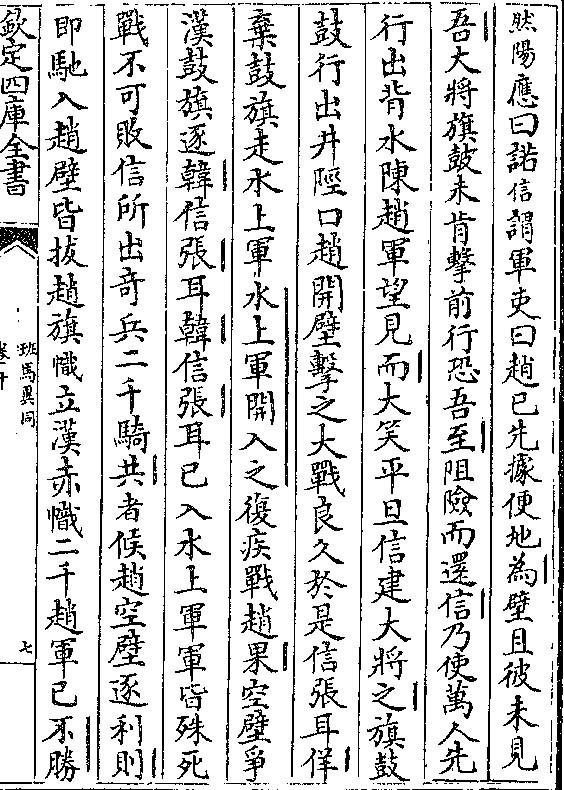 然陽應曰諾信謂軍吏曰趙已先據便地為壁且彼未見
吾大將旗鼓未肯擊前行恐吾至阻險而還信乃使萬人先
行出背水陳趙軍望見而大笑平旦信建大將之旗鼓
鼓行出井陘口趙開壁擊之大戰良久於是信張耳佯
棄鼓旗走水上軍水上軍開入之復疾戰趙果空壁爭
漢鼓旗逐韓信張耳韓信張耳已入水上軍軍皆殊死
戰不可敗信所出奇兵二千騎共者候趙空壁逐利則
即馳入趙壁皆拔趙旗幟立漢赤幟二千趙軍已不勝
欽定四庫全書
班馬異同
卷十
七